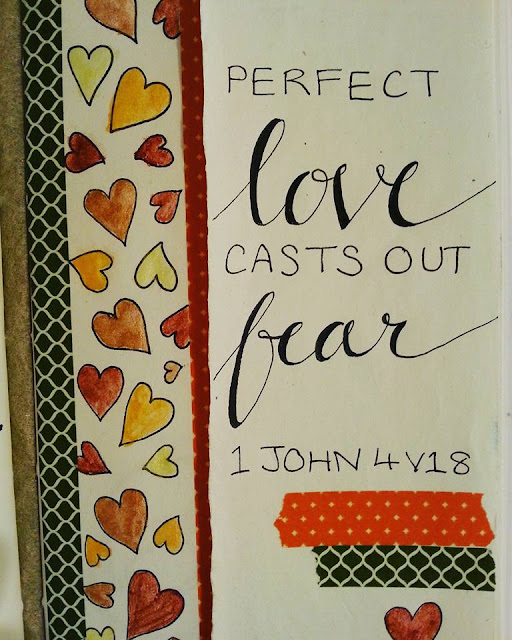 PERFECT
love
CASTS OUT
fear
1 JOHN 4 V18